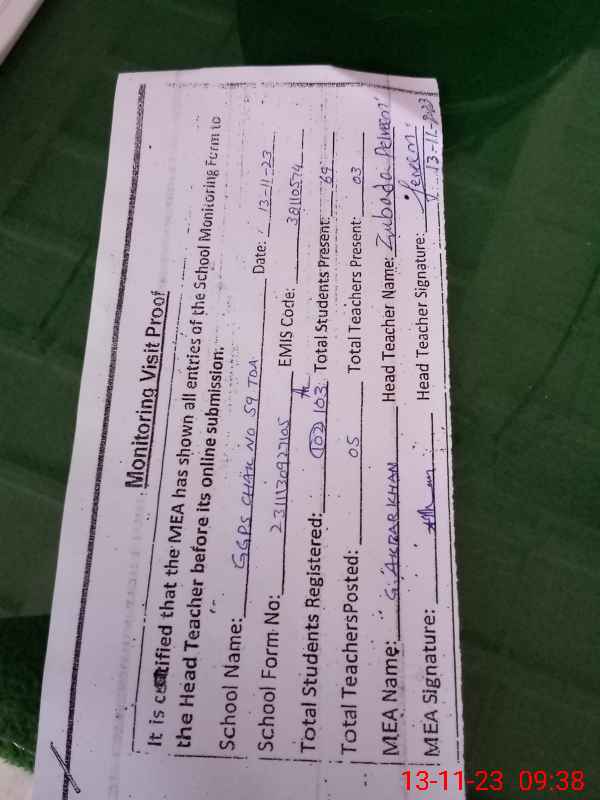 Monitoring Visit Proof
It is certified that the MEA has shown all entries of the School Monitoring Form to
the Head Teacher before its online submission.
School Name: GGPS CHAK NO 59 TDA Date: 13-11-23
School Form No: 2311130927105 EMIS Code: 38110574
Total Students Registered: 102 103 Total Students Present: 69
Total TeachersPosted: 05 Total Teachers Present: 03
MEA Name: G. AKBAR KHAN Head Teacher Name: Zubada Perveen
MEA Signature: Head Teacher Signature: 13-11-2023
13-11-23 09:38